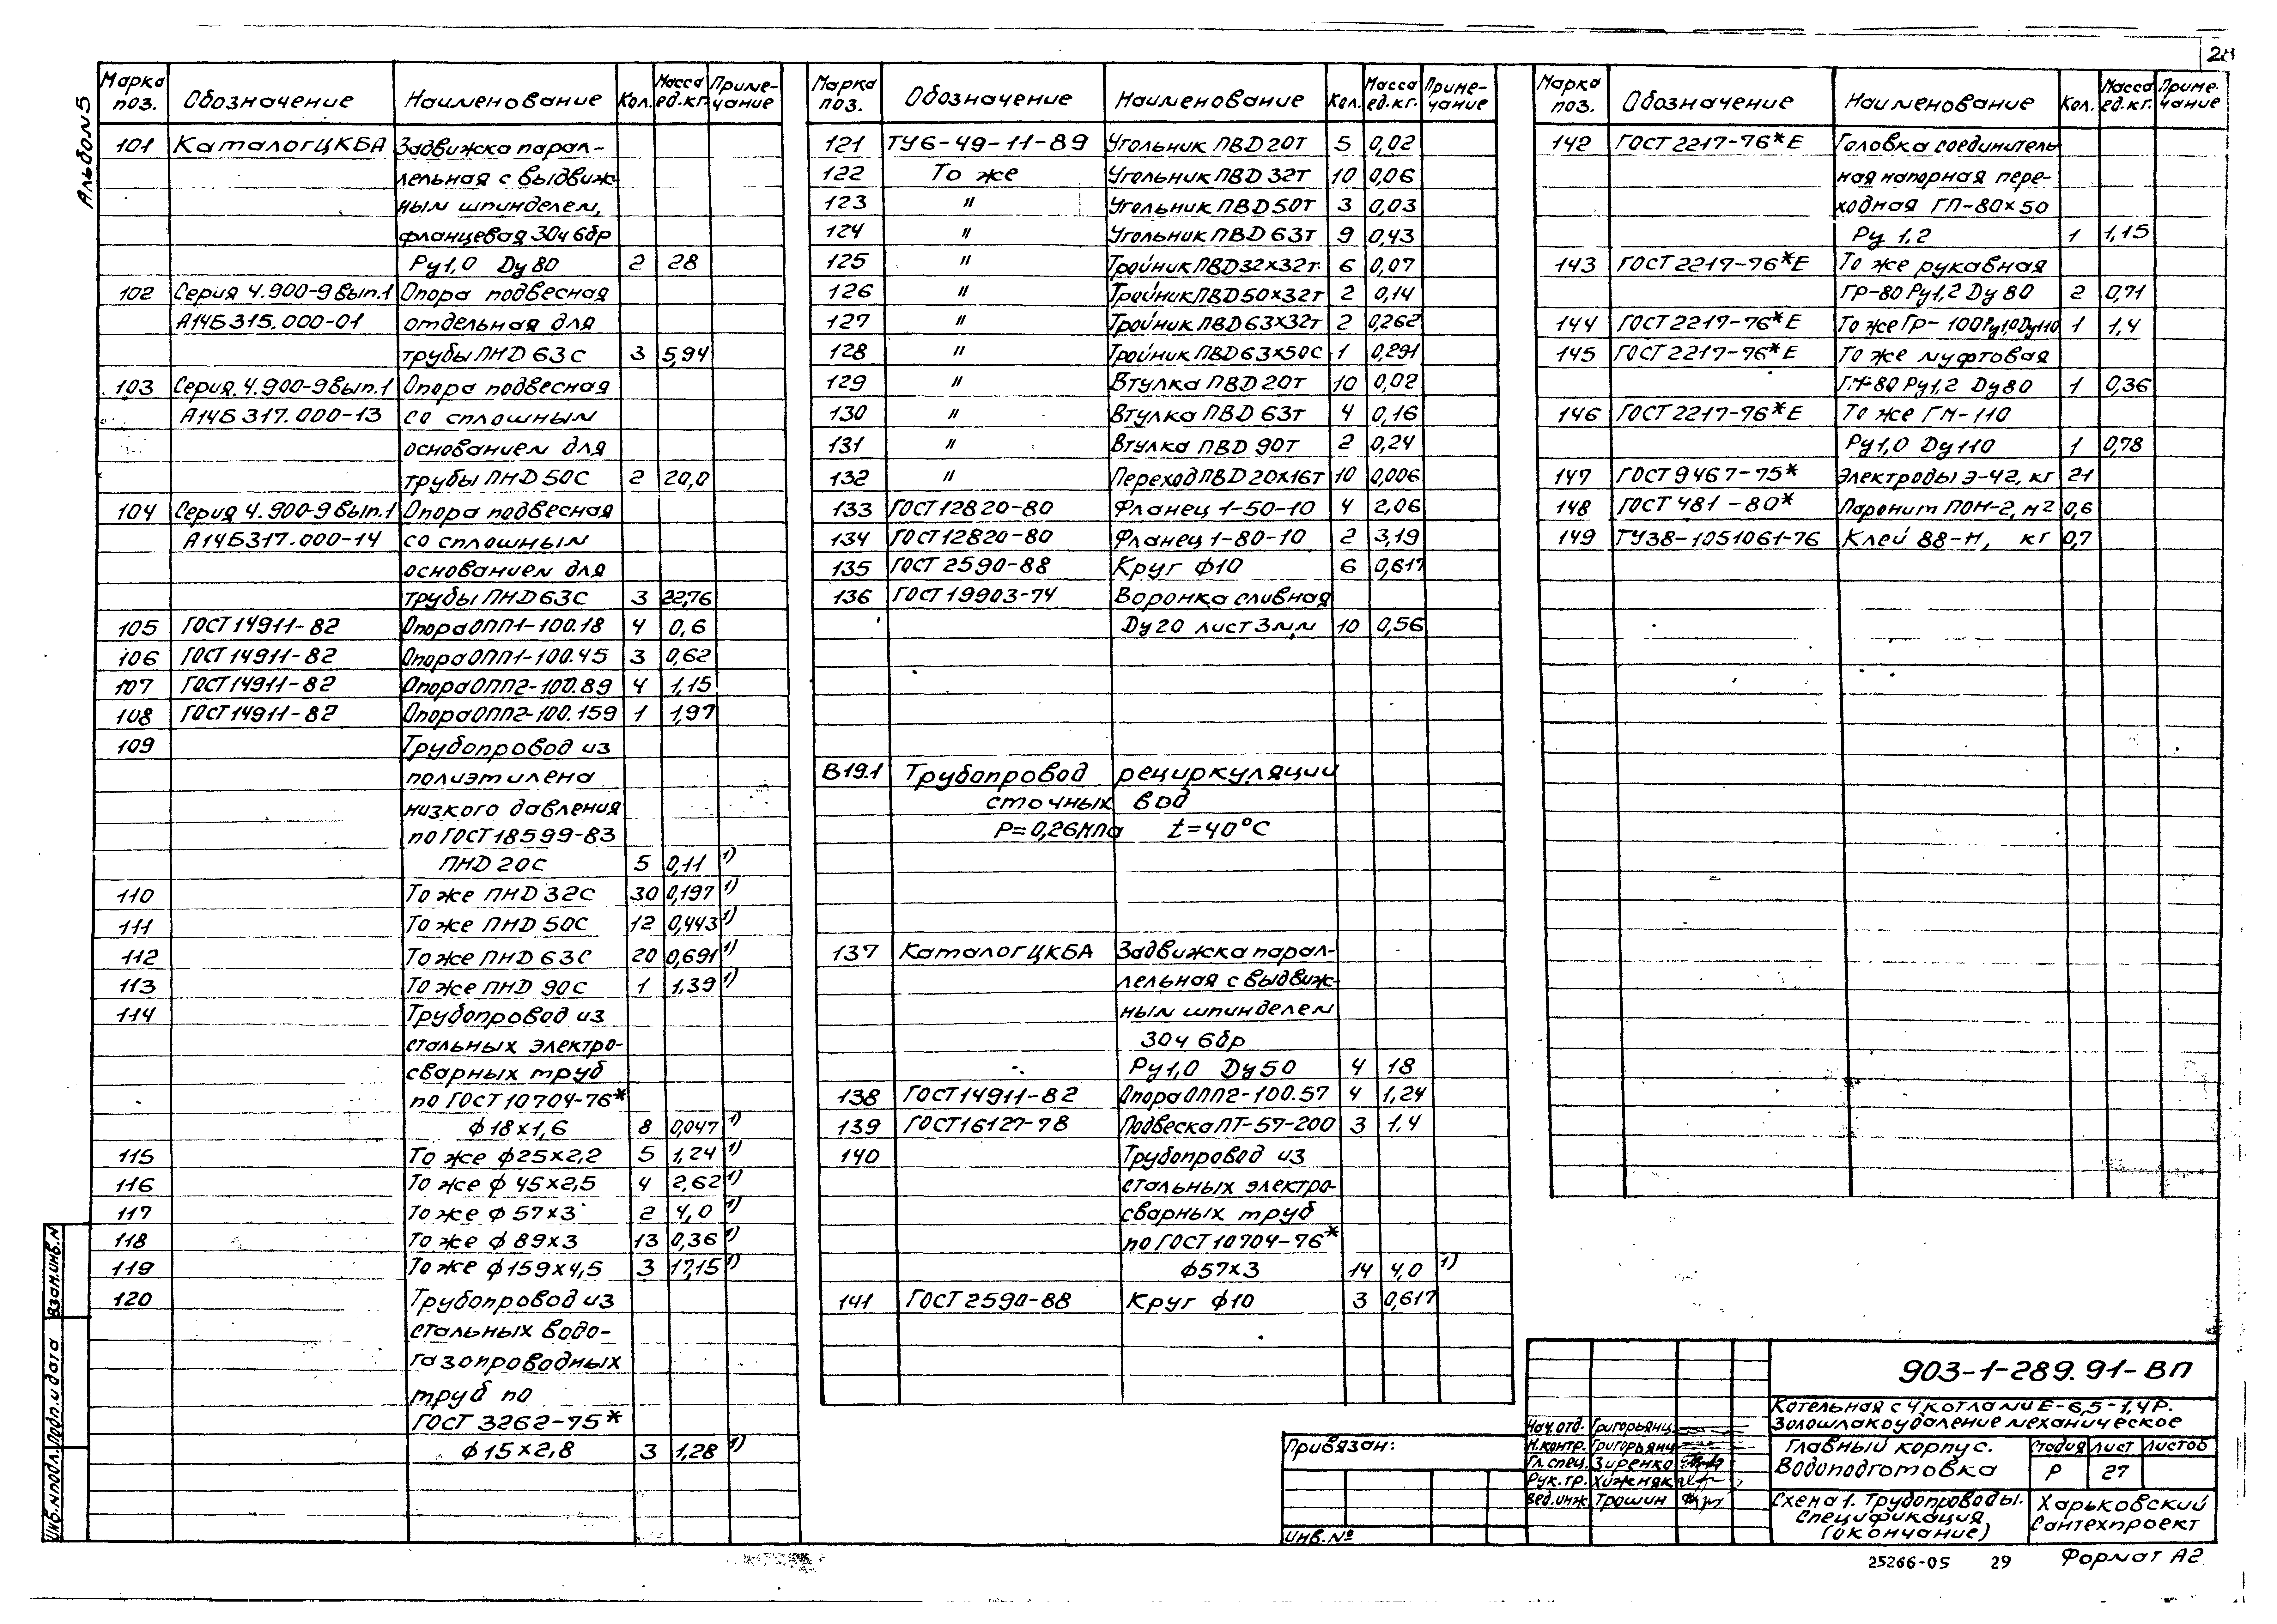 28
Альбом 5
Марка поз. Обозначение Наименование Кол. Масса ед.кг. Приме-чание
101 Каталог ЦКБА Задвижка парал-
лельная с выдвиж-
ным шпинделем,
фланцевая 30ч6бр
Ру1,0 Ду80 2 28
102 Серия 4.900-9 вып.1 Опора подвесная
А14Б315.000-01 отдельная для
трубы ПНД 63С 3 5,94
103 Серия 4.900-9 вып.1 Опора подвесная
А14Б317.000-13 со сплошным
основанием для
трубы ПНД 50С 2 20,0
104 Серия 4.900-9 вып.1 Опора подвесная
А14Б317.000-14 со сплошным
основанием для
трубы ПНД 63С 3 22,76
105 ГОСТ 14911-82 Опора ОПП1-100.18 4 0,6
106 ГОСТ 14911-82 Опора ОПП1-100.45 3 0,62
107 ГОСТ 14911-82 Опора ОПП2-100.89 4 1,15
108 ГОСТ 14911-82 Опора ОПП2-100.159 1 1,97
109 Трубопровод из
полиэтилена
низкого давления
по ГОСТ 18599-83
ПНД 20С 5 0,11 1)
110 То же ПНД 32С 30 0,197 1)
111 То же ПНД 50С 12 0,443 1)
112 То же ПНД 63С 20 0,691 1)
113 То же ПНД 90С 1 1,39 1)
114 Трубопровод из
стальных электро-
сварных труб
по ГОСТ 10704-76*
ф18×1,6 8 0,047 1)
115 То же ф25×2,2 5 1,24 1)
116 То же ф45×2,5 4 2,62 1)
117 То же ф57×3 2 4,0 1)
118 То же ф89×3 13 0,36 1)
119 То же ф159×4,5 3 17,15 1)
120 Трубопровод из
стальных водо-
газопроводных
труб по
ГОСТ 3262-75*
ф15×2,8 3 1,28 1)
Марка поз. Обозначение Наименование Кол. Масса ед.кг. Приме-чание
121 ТУ6-49-11-89 Угольник ПВД 20Т 5 0,02
122 То же Угольник ПВД 32Т 10 0,06
123 " Угольник ПВД 50Т 3 0,03
124 " Угольник ПВД 63Т 9 0,43
125 " Тройник ПВД 32×32Т 6 0,07
126 " Тройник ПВД 50×32Т 2 0,14
127 " Тройник ПВД 63×32Т 2 0,262
128 " Тройник ПВД 63×50С 1 0,291
129 " Втулка ПВД 20Т 10 0,02
130 " Втулка ПВД 63Т 4 0,16
131 " Втулка ПВД 90Т 2 0,24
132 " Переход ПВД 20×16Т 10 0,006
133 ГОСТ 12820-80 Фланец 1-50-10 4 2,06
134 ГОСТ 12820-80 Фланец 1-80-10 2 3,19
135 ГОСТ 2590-88 Круг ф10 6 0,617
136 ГОСТ 19903-74 Воронка сливная
Ду20 лист 3мм 10 0,56
В19.1 Трубопровод рециркуляции
сточных вод
Р=0,26МПа t=40°С
137 Каталог ЦКБА Задвижка парал-
лельная с выдвиж-
ным шпинделем
30ч 6бр
Ру1,0 Ду50 4 18
138 ГОСТ 14911-82 Опора ОПП2-100.57 4 1,24
139 ГОСТ 16127-78 Подвеска ПТ-57-200 3 1.4
140 Трубопровод из
стальных электро-
сварных труб
по ГОСТ 10704-76*
ф57×3 14 4,0 1)
141 ГОСТ 2590-88 Круг ф10 3 0,617
Марка поз. Обозначение Наименование Кол. Масса ед.кг. Приме-чание
142 ГОСТ 2217-76*Е Головка соединитель
ная напорная пере-
ходная ГП-80×50
Ру 1,2 1 1,15
143 ГОСТ 2217-76*Е То же рукавная
ГР-80 Ру1,2 Ду 80 2 0,71
144 ГОСТ 2217-76*Е То же Гр-100 Ру1,0 Ду110 1 1,4
145 ГОСТ 2217-76*Е То же муфтовая
ГМ-80 Ру1,2 Ду80 1 0,36
146 ГОСТ 2217-76*Е То же ГМ-110
Ру1,0 Ду110 1 0,78
147 ГОСТ 9467-75* Электроды Э-42, кг 21
148 ГОСТ 481-80* Паронит ПОН-2, м2 0,6
149 ТУ38-1051061-76 Клей 88-Н, кг 0,7
903-1-289.91-ВП
Котельная с 4 котлами Е-6,5-1,4Р.
Золошлакоудаление механическое
Главный корпус.
Водоподготовка
Стадия Лист Листов
Р 27
Схема 1. Трубопроводы.
Спецификация
(окончание)
Харьковский
Сантехпроект
Нач.отд. Григорьянц
Н.контр. Григорьянц
Гл.спец. Зиренко
Рук.гр. Хижняк
Вед.инж. Трошин
Привязан:
Инв.№
Взам.инв.N
Подп. и дата
Инв.N подл.
25266-05 29 Формат А2